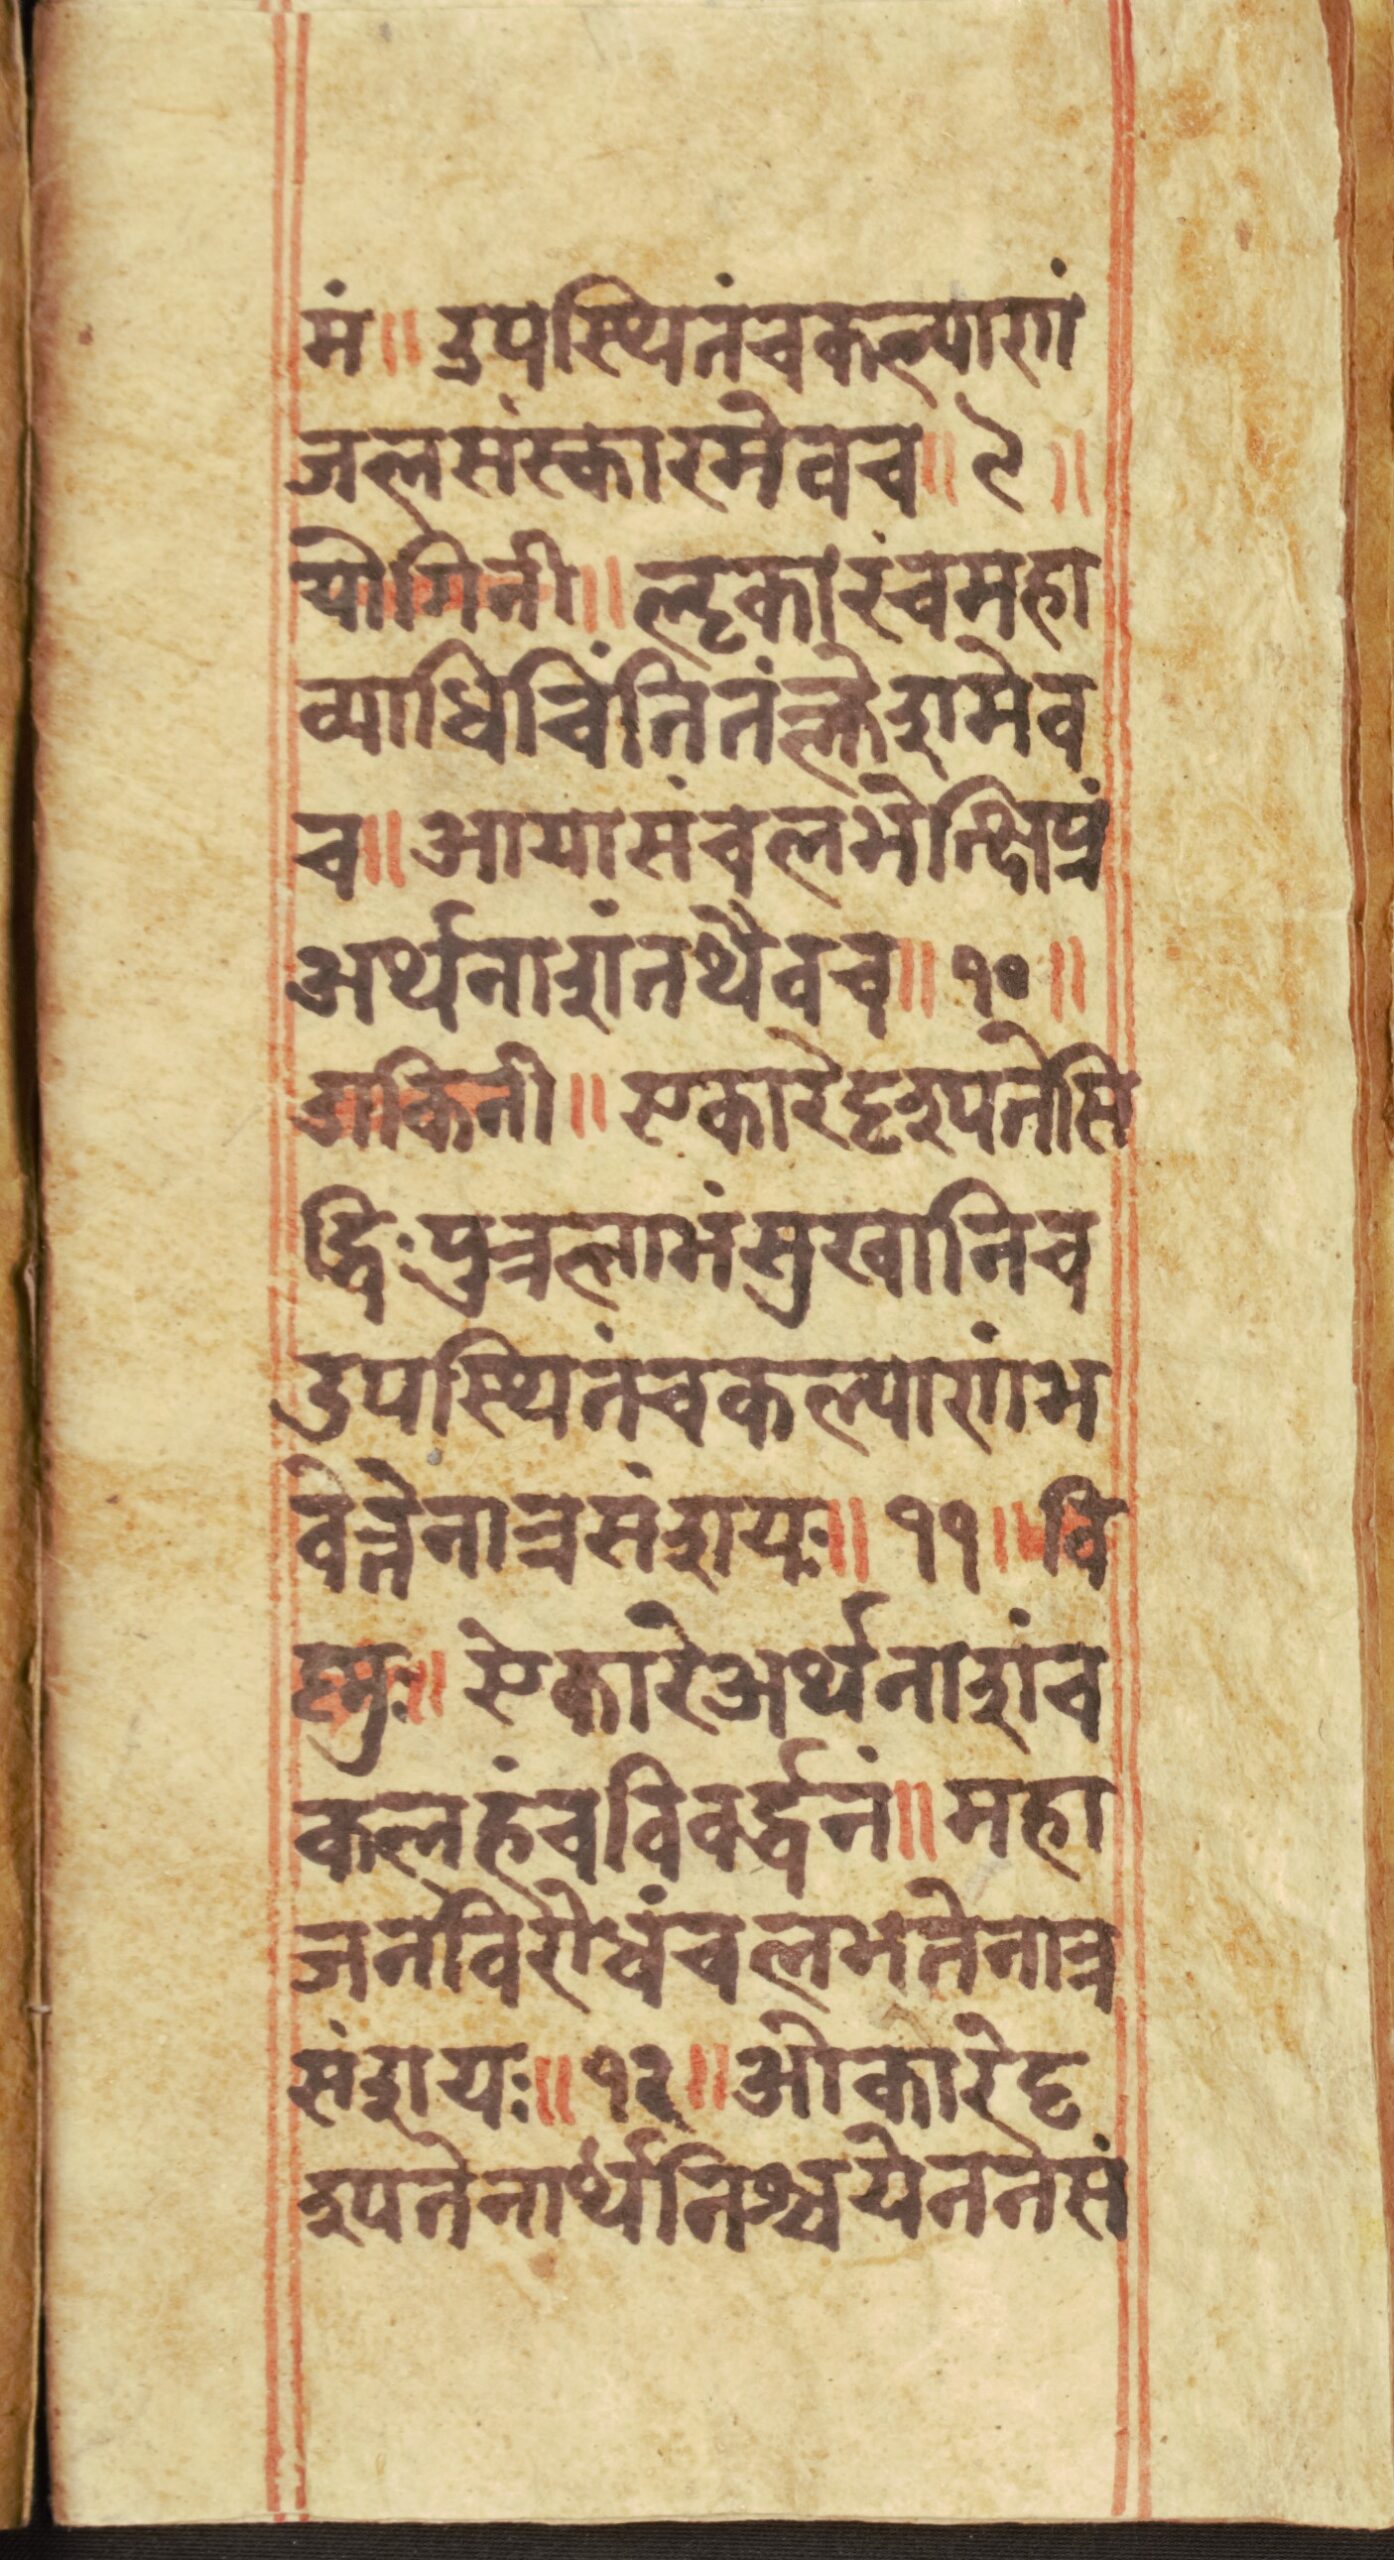 मं ॥ उपस्थितंचकल्याणं
जलसंस्कारमेवच ॥ ९ ॥
योगिनी ॥ ऌकारंचमहा
व्याधिचिंतितंक्लेशमेव
च ॥ आयासंचलभेत्क्षिप्रं
अर्थनाशंतथैवच ॥ १० ॥
डाकिनी ॥ एकारेदृश्यतेसि
द्धिःपुत्रलाभंसुखानिच
उपस्थितंचकल्याणंभ
वेत्तेनात्रसंशयः ॥ ११ ॥ वि
ष्णुः ॥ ऐकारेअर्थनाशंच
कलहंचविवर्द्धनं ॥ महा
जनविरोधंचलभतेनात्र
संशयः ॥ १२ ॥ ओकारेदृ
श्यतेनार्थनिश्चयेनतेसं